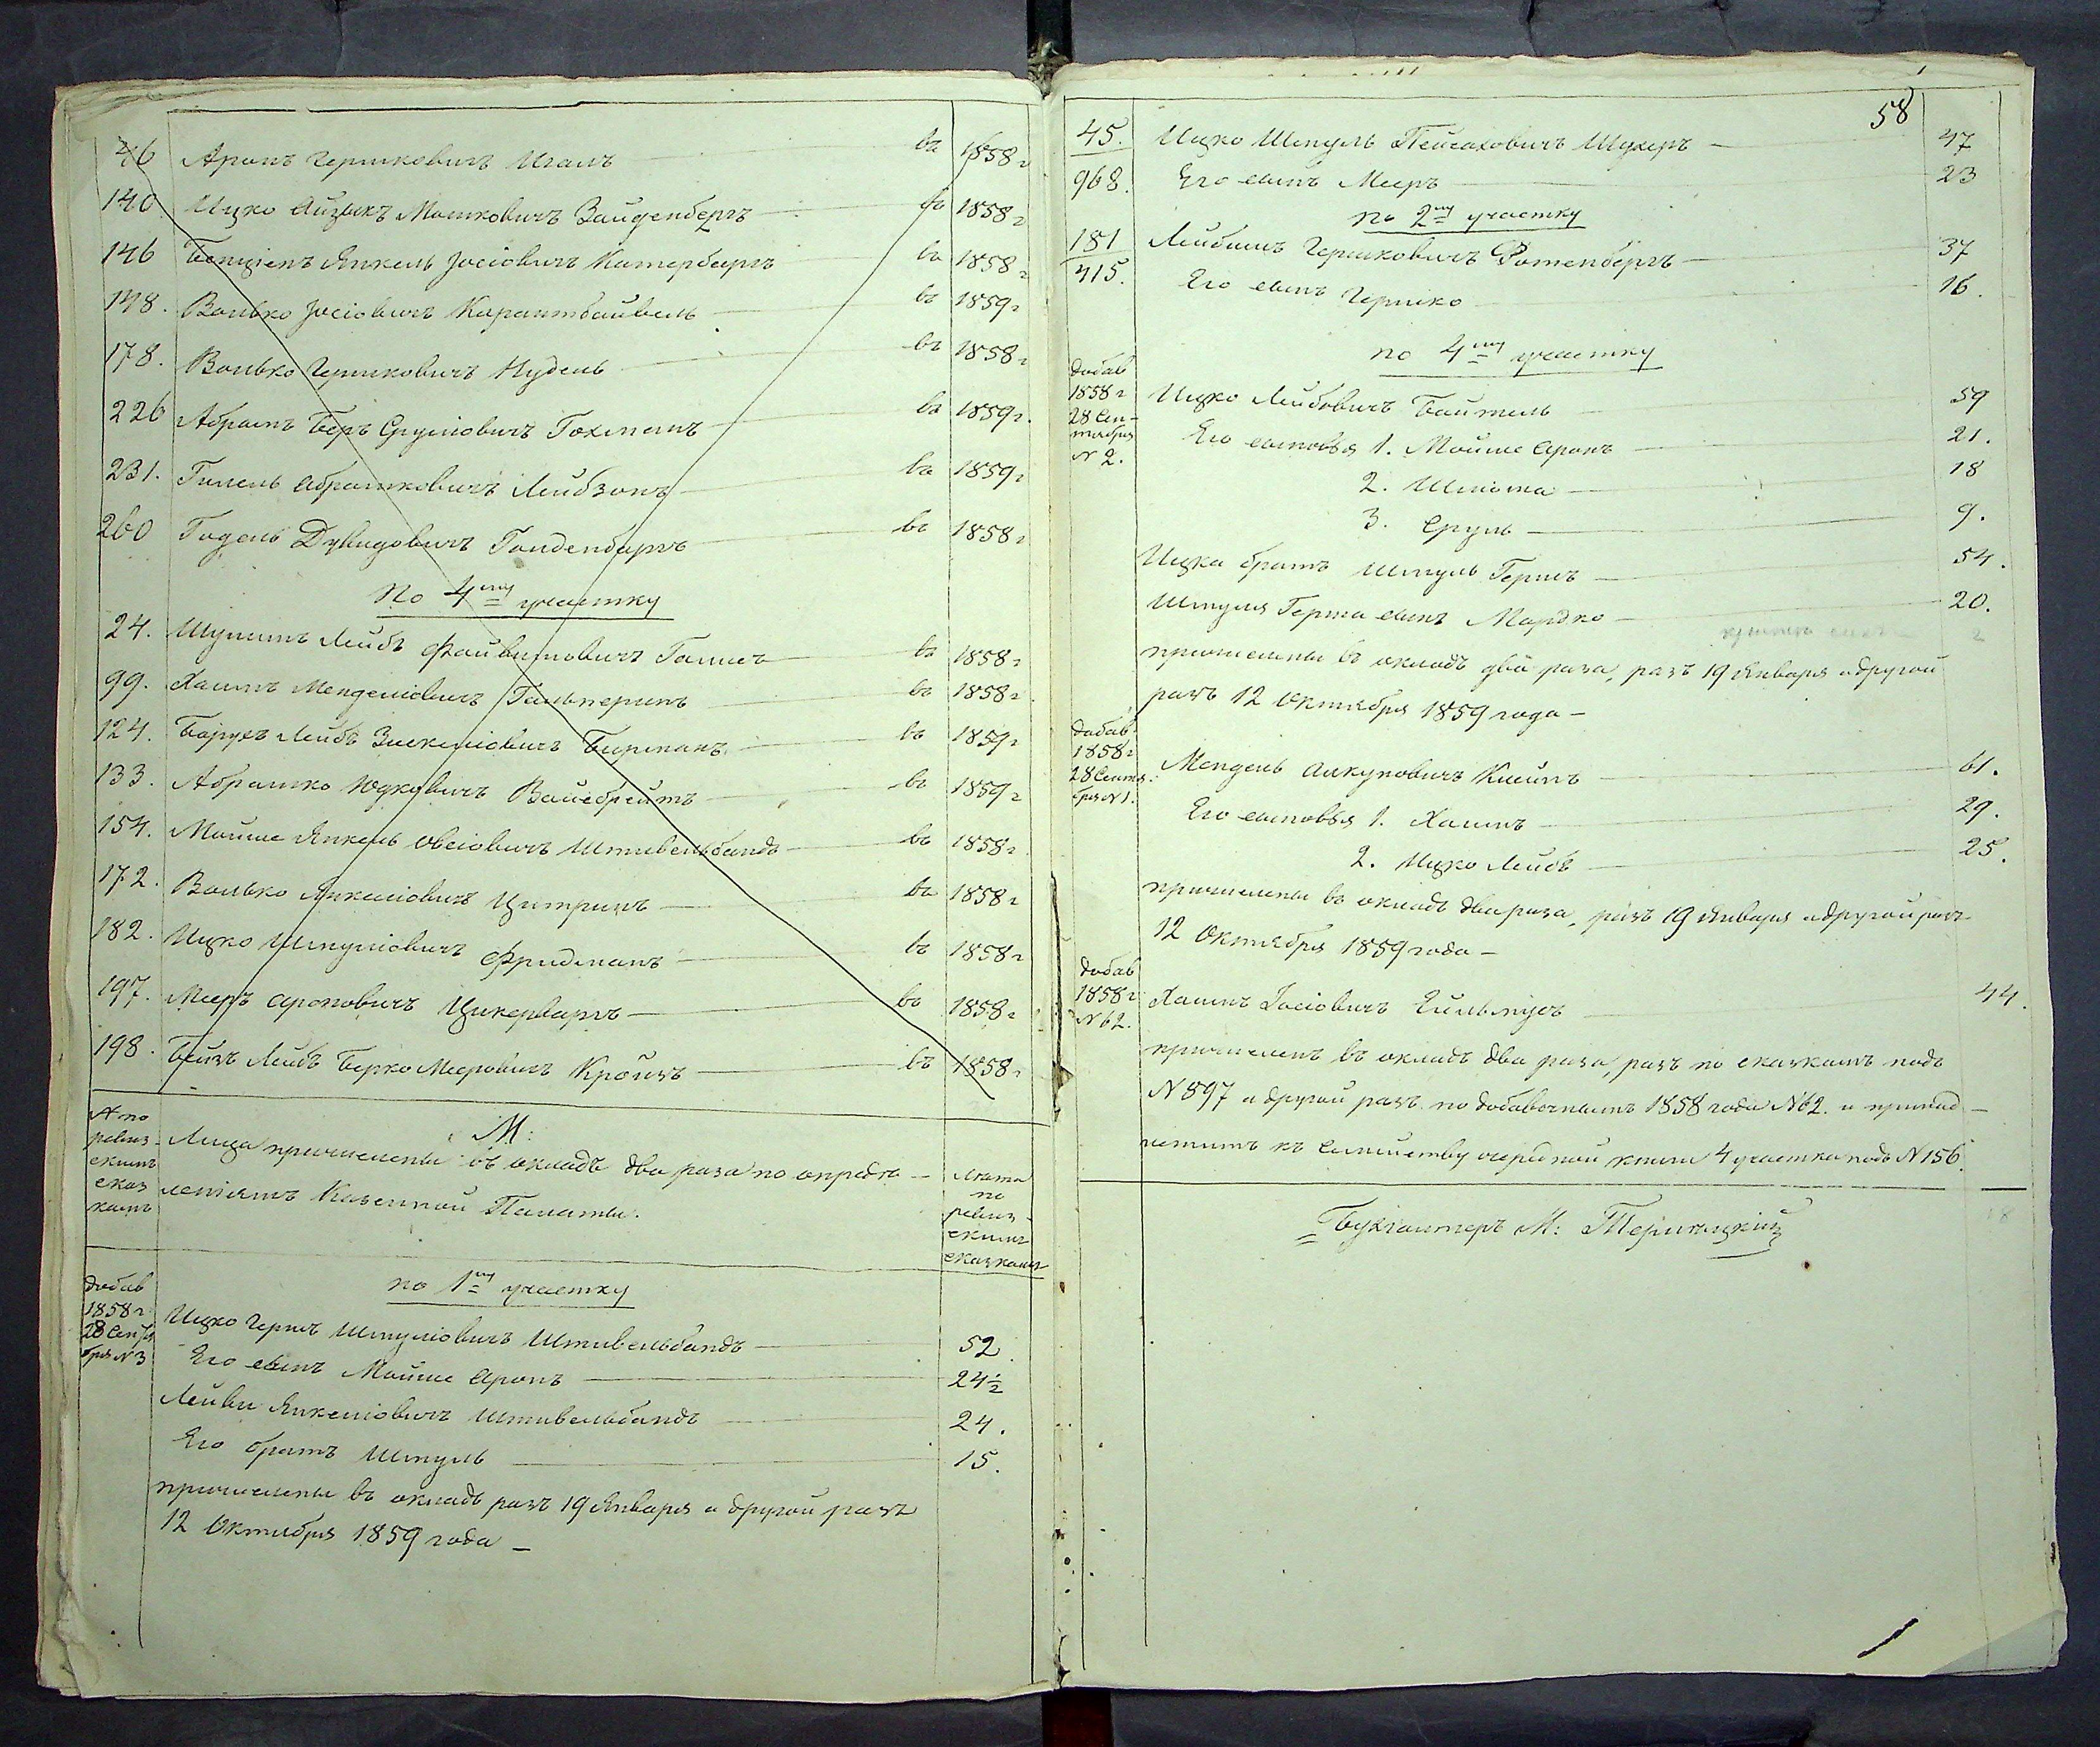 46 Аронъ Гершковичъ Иганъ въ 1858 г
140 Ицко Айзыкъ Мошковичъ Зайденбергъ въ 1858 г
146 Бенціенъ Янкель Іосіовичъ Катербаргъ въ 1858 г
148. Волько Іосіовичъ Карантбайвель въ 1859 г
178. Волько Гершковичъ Нудель въ 1858 г
226 Абрамъ Беръ Сруліовичъ Гохманъ въ 1859 г.
231. Гилель Абрамковичъ Лейбзонъ въ 1859 г
260 Годель Дувидовичъ Голденбаргъ въ 1858 г
по 4му участку
24. Шулимъ Лейбъ Файвишовичъ въ 1858 г
99. Хаимъ Менделіовичъ Гальперинъ въ 1858 г
124. Борухъ Лейбъ Бирманъ въ 1859 г
133. Абрамко Юдковичъ Вайсбрейтъ въ 1859 г
154. Мойше Янкель Овсіовичъ Штивельбандъ въ 1858 г
172. Волько Янкеліовичъ Цитринъ въ 1858 г
182. Ицко Шмуліовичъ Фридманъ въ 1858 г
197. Мееръ Ароновичъ Цукерваргъ въ 1858 г
198. Бейзъ Лейбъ Берко Мееровичъ Кройзъ въ 1858 г
№ по ревизскимъ сказкамъ
М:
Лица причислены въ окладъ два раза по опредѣ-
леніямъ Казенной Палаты.
Лѣта по ревизскимъ сказкамъ
по 1му участку
добав 1858 г 28 Сентября N 3
Ицко Гершъ Шмуліовичъ Штивельбандъ 52.
Его сынъ Мойше Аронъ 24½
Лейви Янкеліовичъ Штивельбандъ 24.
Его братъ Шмуль 15.
причислены въ окладъ разъ 19 Января а другой разъ
12 Октября 1859 года –
58
45. Ицко Шмуль Пейсаховичъ Шухеръ 47
968. Его сынъ Мееръ 23
по 2му участку
181 Лейбишъ Гершковичъ Ротенбергъ 37
415. Его сынъ Гершко 16.
по 4му участку
добав 1858 г 28 Сентября N 2.
Ицко Лейбовичъ Байтель 59
Его сыновья 1. Мойше Аронъ 21.
2. Шлюма 18
3. Сруль 9.
Ицка братъ Шмуль Гершъ 54.
Шмуля Герша сынъ Мордко 20.
причислены въ окладъ два раза, разъ 19 Января а другой
разъ 12 Октября 1859 года –
добав 1858 г 28 Сентября N 1.
Мендель Янкуновичъ Клейнъ 61.
Его сыновья 1. Хаимъ 29.
2. Ицко Лейбъ 25.
причислены въ окладъ два раза, разъ 19 Января а другой разъ
12 Октября 1859 года –
добав 1858 г N 62.
Хаимъ Іосіовичъ 44.
причисленъ въ окладъ два раза, разъ по сказкамъ подъ
N 897 а другой разъ по добавочнымъ 1858 года N 62. и принад-
лежитъ къ семейству очередной книги 4 участка подъ N 156.
Бухгалтеръ М: